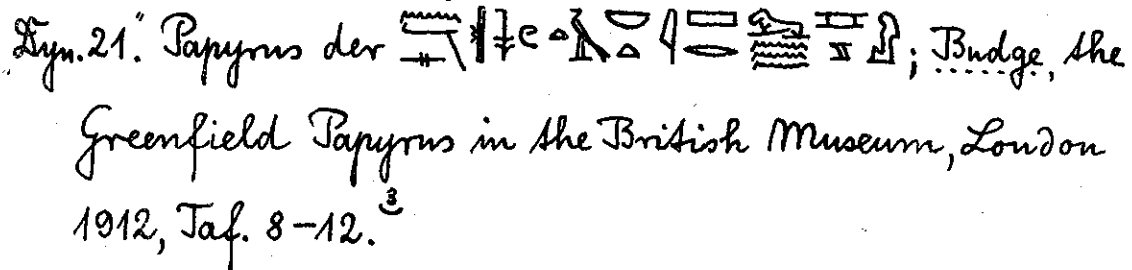 Dyn. 21. Papyrus der ; Budge, the
Greenfield Papyrus in the British Museum, London
1912, Taf. 8–12. 3